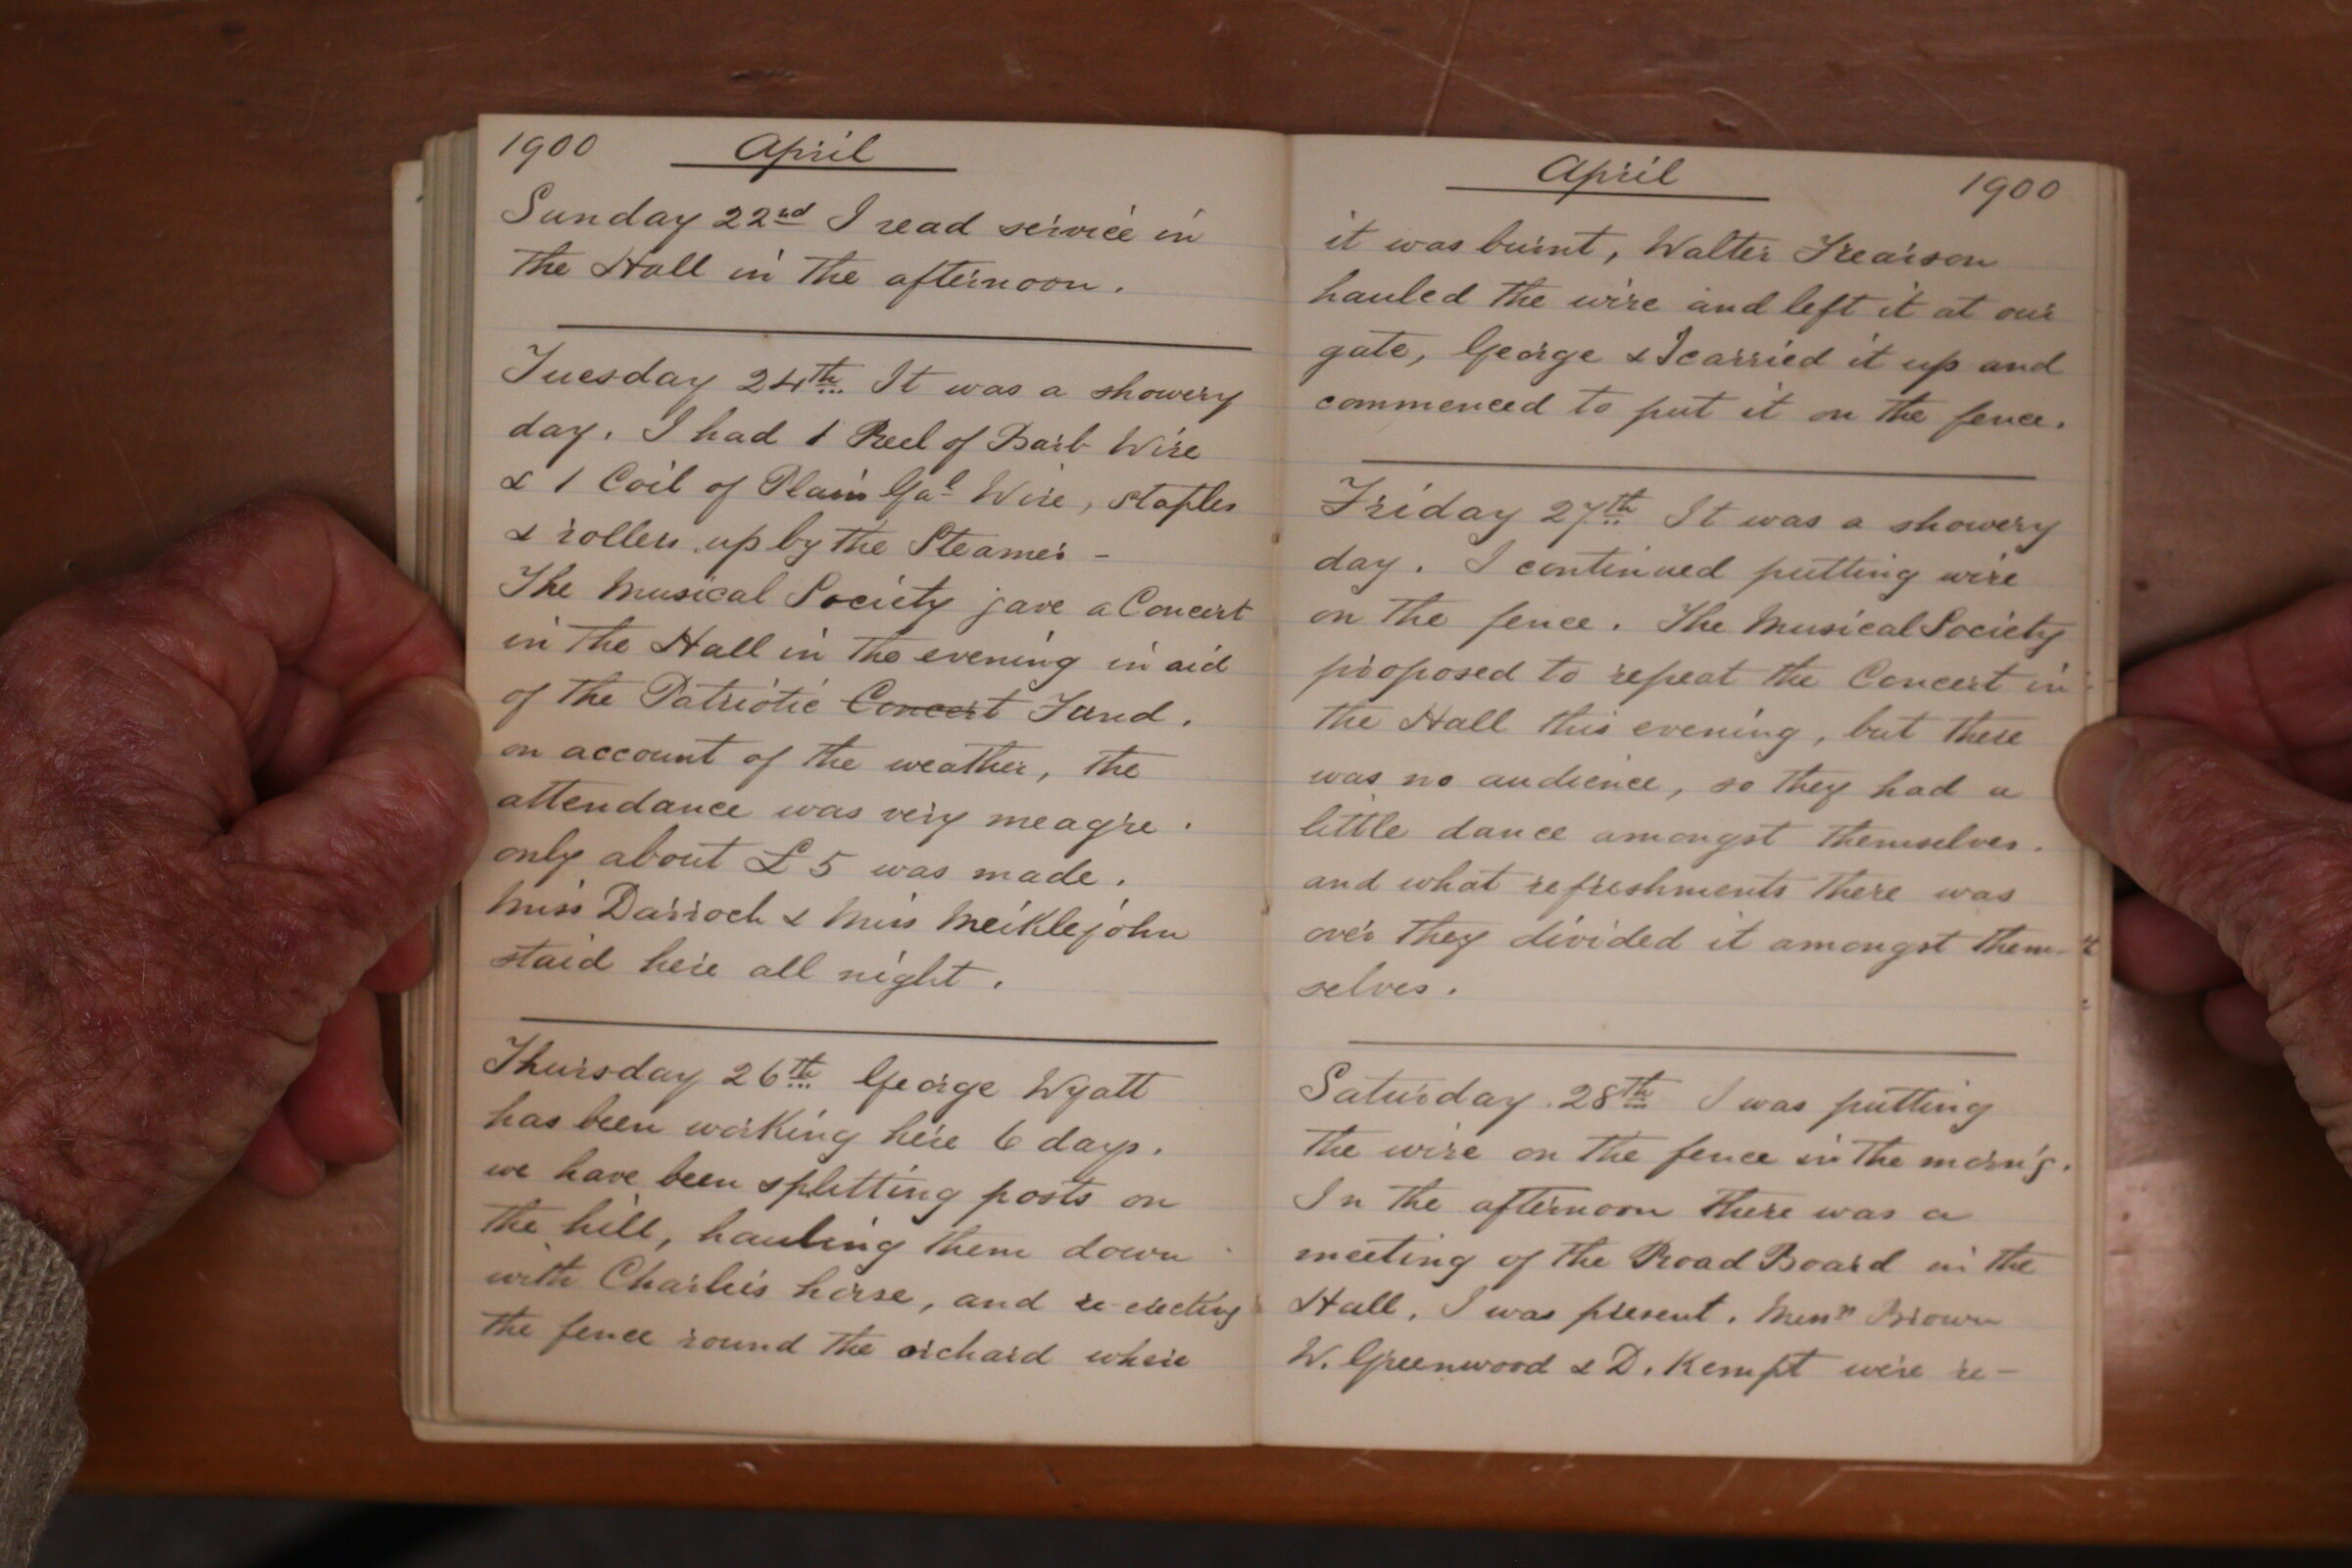 1900 April
Sunday 22nd I read service in
the Hall in the afternoon.
Tuesday 24th It was a showery
day. I had 1 Reel of Barb Wire
& 1 Coil of Plain Gal Wire, staples
& rollers up by the Steamer -
The Musical Society gave a Concert
in the Hall in the evening in aid
of the Patriotic Concert Fund.
on account of the weather, the
attendance was very meagre.
only about £5 was made.
Miss Darroch & Miss Meiklejohn
staid here all night.
Thursday 26th George Wyatt
has been working here 6 days.
we have been splitting posts on
the hill, hauling them down
with Charlie's horse, and re-erecting
the fence round the orchard where
April 1900
it was burnt, Walter Frearson
hauled the wire and left it at our
gate, George & I carried it up and
commenced to put it on the fence.
Friday 27th It was a showery
day. I continued putting wire
on the fence. The Musical Society
proposed to repeat the Concert in
the Hall this evening, but there
was no audience, so they had a
little dance amongst themselves.
and what refreshments there was
over they divided it amongst them-
selves.
Saturday 28th I was putting
the wire on the fence in the morn'g.
In the afternoon there was a
meeting of the Road Board in the
Hall. I was present. Messrs Brown
W. Greenwood & D. Kempt were re-